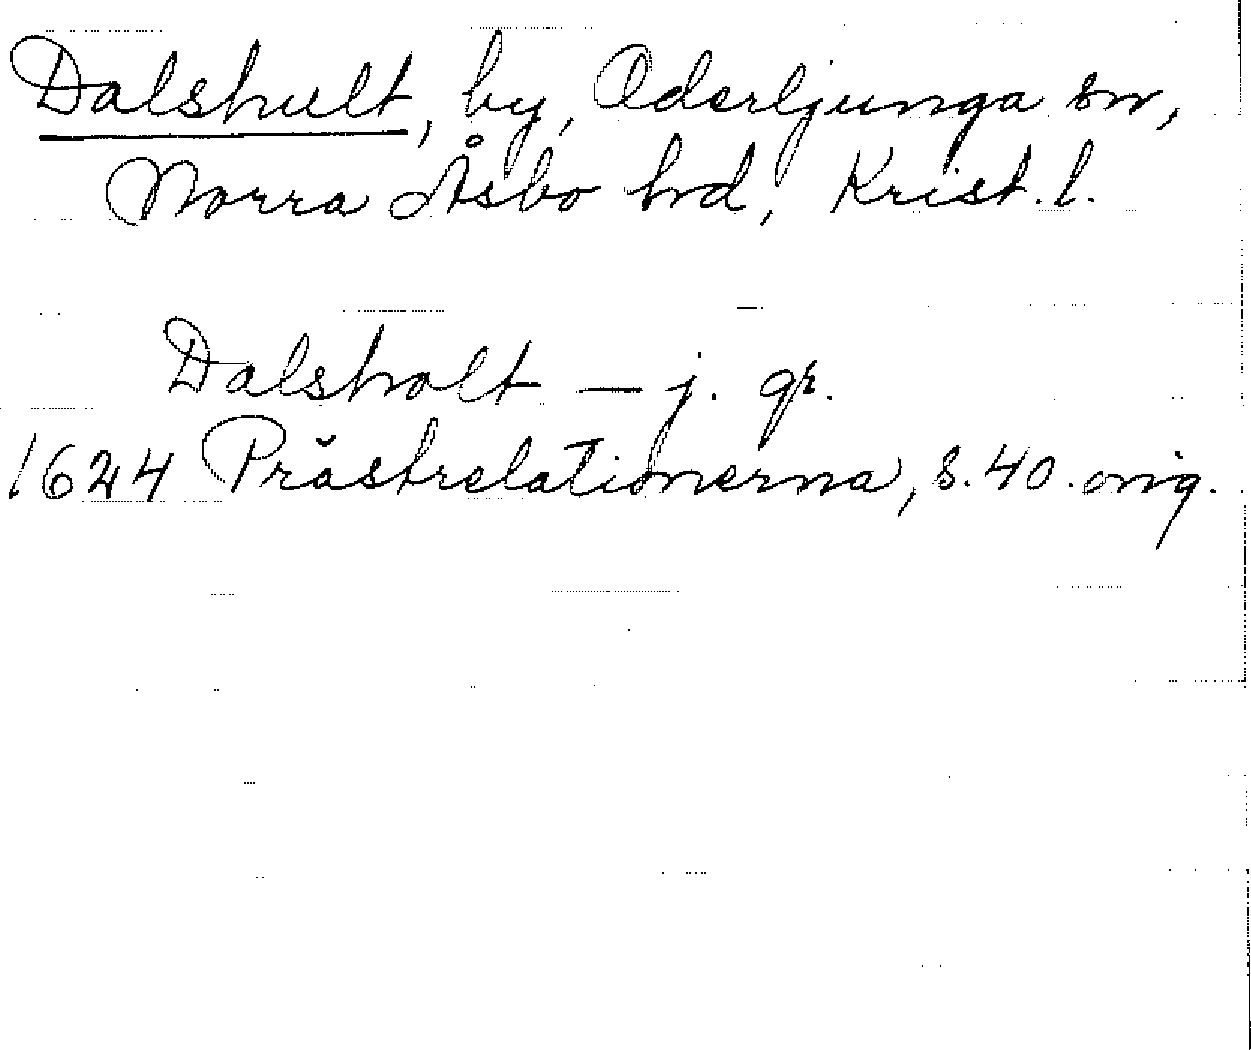 Dalshult, by, Oderljunga sn,
Norra Åsbo hrd, Krist. l.
Dalsholt — j. gr.
1624 Prästrelationerna, s. 40. orig.